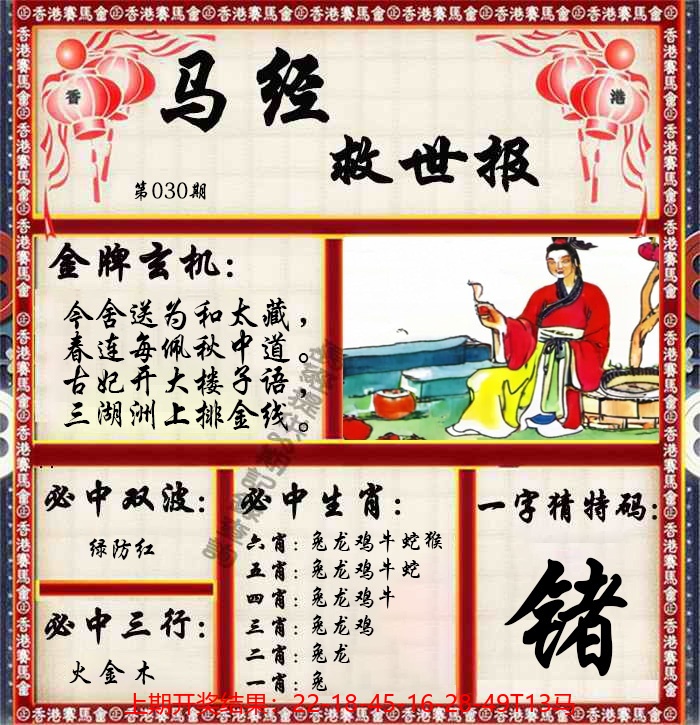 香港賽馬會
香 港
马经
救世报
第030期
金牌玄机：
今舍送为和太藏，
春连每佩秋中道。
古妃开大楼子语，
三湖洲上排金线。
必中双波：
绿防红
必中三行：
火金木
必中生肖：
六肖：兔龙鸡牛蛇猴
五肖：兔龙鸡牛蛇
四肖：兔龙鸡牛
三肖：兔龙鸡
二肖：兔龙
一肖：兔
一字猜特码：
锗
上期开奖结果：22-18-45-16-28-49T13马